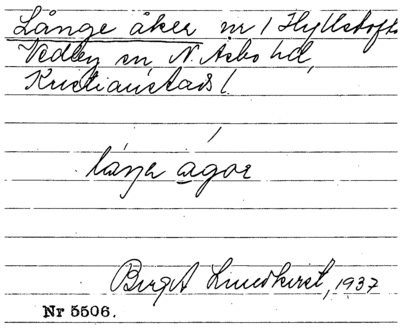 Långe åker nr 1 Hyllstofta
Vedby sn N. Åsbo hd,
Kristianstads l.
låŋə agor
Birgit Lundkvist, 1937
Nr 5506.